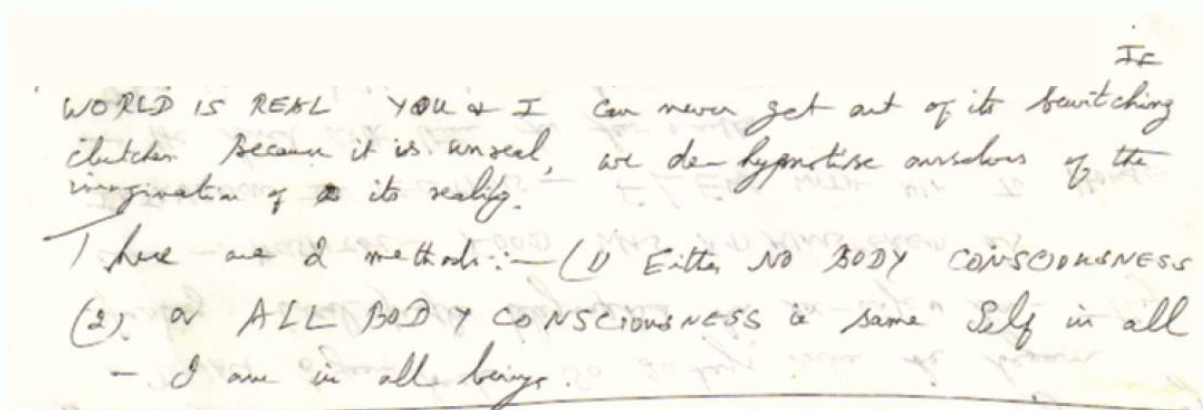 If
WORLD IS REAL YOU & I can never get out of its bewitching
clutches Because it is unreal, we de-hypnotise ourselves of the
imagination of its reality.
There are 2 methods:- (1) Either NO BODY CONSCIOUSNESS
(2) or ALL BODY CONSCIOUSNESS ie same Self in all
- I am in all beings.